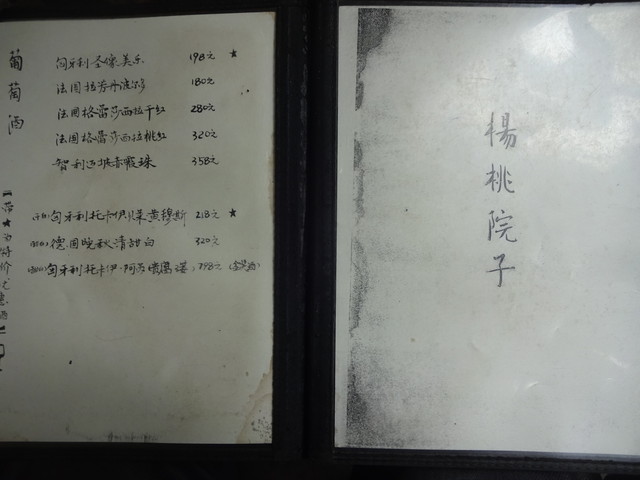 葡萄酒
匈牙利圣像美乐 198元 ★
法国拉芳丹波尔多 180元
法国格雷莎西拉干红 280元
法国格雷莎西拉桃红 320元
智利迈坡赤霞珠 358元
匈牙利托卡伊 黄穆斯 218元 ★
德国晚秋清甜白 320元
匈牙利托卡伊·阿苏 398元
带★为特价优惠酒
楊桃院子